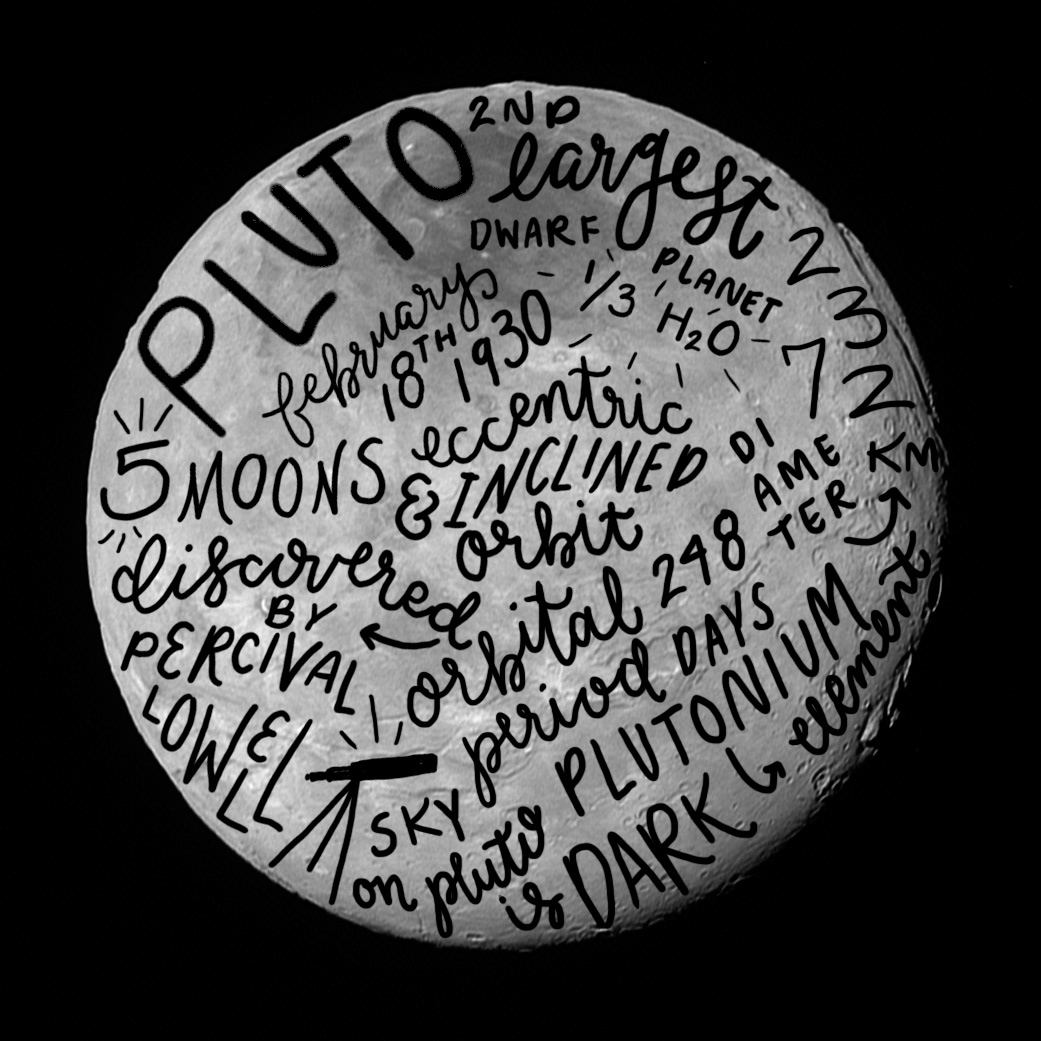 PLUTO
2ND
largest
DWARF
PLANET
2372
KM
DI
AME
TER
february
18TH 1930
1/3
H2O
5 MOONS
eccentric
& INCLINED
orbit
discovered
BY
PERCIVAL
LOWELL
orbital
period
248
DAYS
PLUTONIUM
element
SKY
on pluto
is DARK